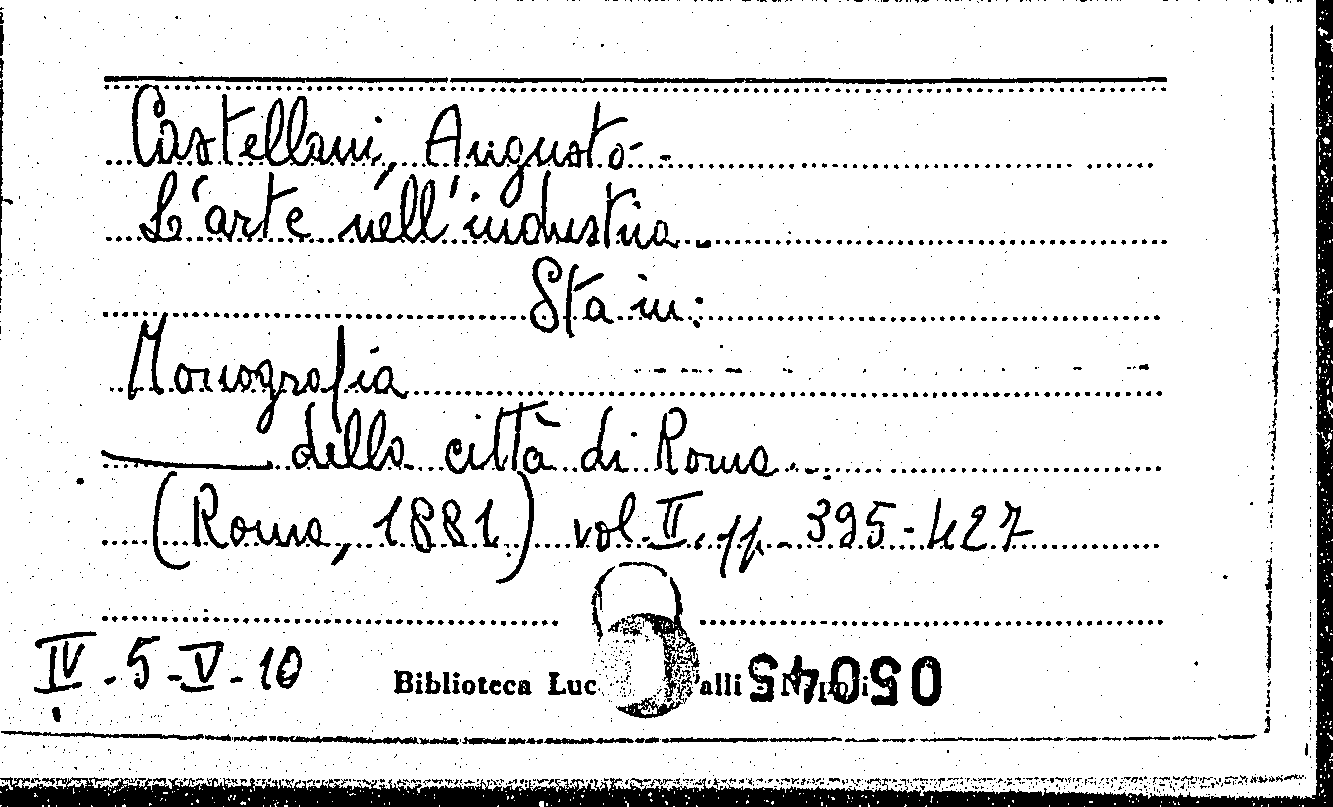 Castellani, Augusto -
L'arte nell'industria -
Sta in:
Monografia
della città di Roma
(Roma, 1881) vol. II, pp. 395-427
IV-5-V-10
Biblioteca Luc alli